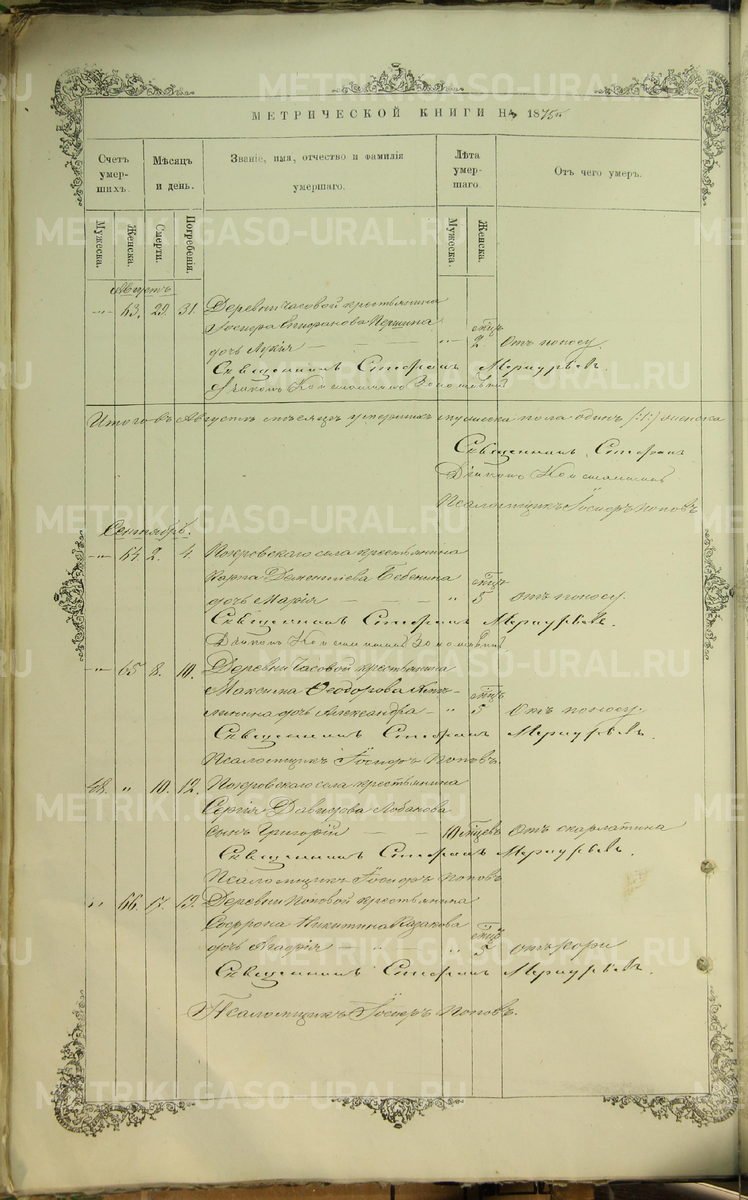 МЕТРИЧЕСКОЙ КНИГИ НА 1875
Счетъ умер- шихъ.
Мѣсяцъ и день.
Званіе, имя, отчество и фамилія умершаго.
Лѣта умер- шаго.
Отъ чего умеръ.
Мужеска. Женска. Смерти. Погребенія. Мужеска. Женска.
Августъ
63. 29. 31. Деревни Часовой крестьянина
Іосифа Першина
дочь Лукія 2 Отъ поносу.
Священникъ Стефанъ Меркурьевъ.
Діаконъ
Итого въ Августѣ мѣсяцѣ умершихъ мужеска пола одинъ (:1:) женска
Священникъ Стефанъ
Діаконъ
Псаломщикъ Іосифъ Поповъ
Сентябрь.
64. 2. 4. Покровскаго села крестьянина
Карпа Дементіева Бебенина
дочь Марія 5 отъ поносу.
Священникъ Стефанъ Меркурьевъ.
Діаконъ
65 8. 10. Деревни Часовой крестьянина
Максима Ѳеодорова
дочь Александра 5 Отъ поносу.
Священникъ Стефанъ Меркурьевъ.
Псаломщикъ Іосифъ Поповъ.
48. " 10. 12. Покровскаго села крестьянина
Сергія Давидова Лобанова
сынъ Григорій 10 Отъ скарлатина
Священникъ Стефанъ Меркурьевъ.
Псаломщикъ Іосифъ Поповъ
" 66. 17. 19. Деревни Поповой крестьянина
Софрона Никитина
дочь Агафія 5 отъ кори
Священникъ Стефанъ Меркурьевъ.
Псаломщикъ Іосифъ Поповъ.
METRIKI.GASO-URAL.RU